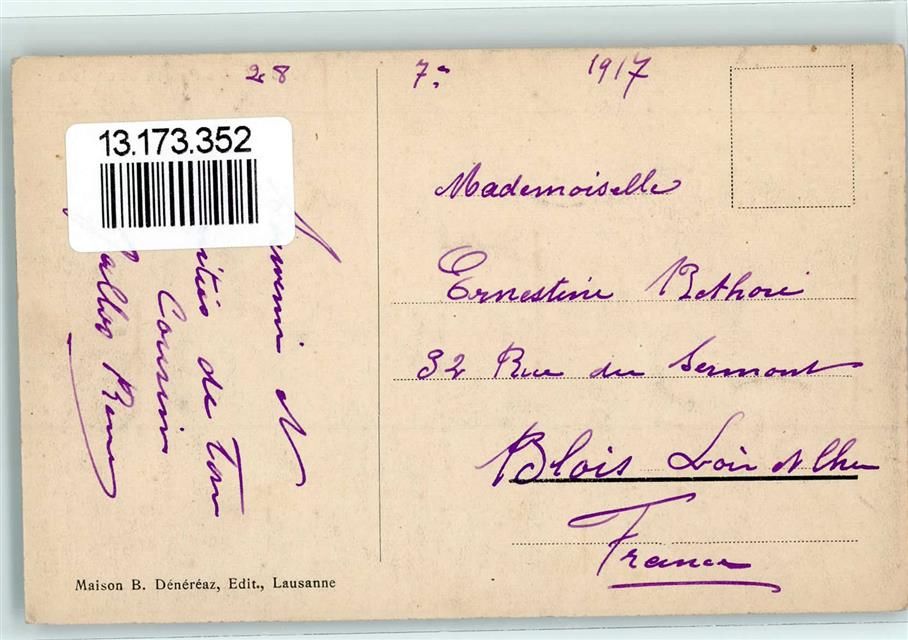 28 7bre 1917
13.173.352
Souvenir et
amitiés de ton
Cousin
René
Mademoiselle
Ernestine Bethoré
32 Rue du Sermont
Blois Loir et Cher
France
Maison B. Dénéréaz, Edit., Lausanne